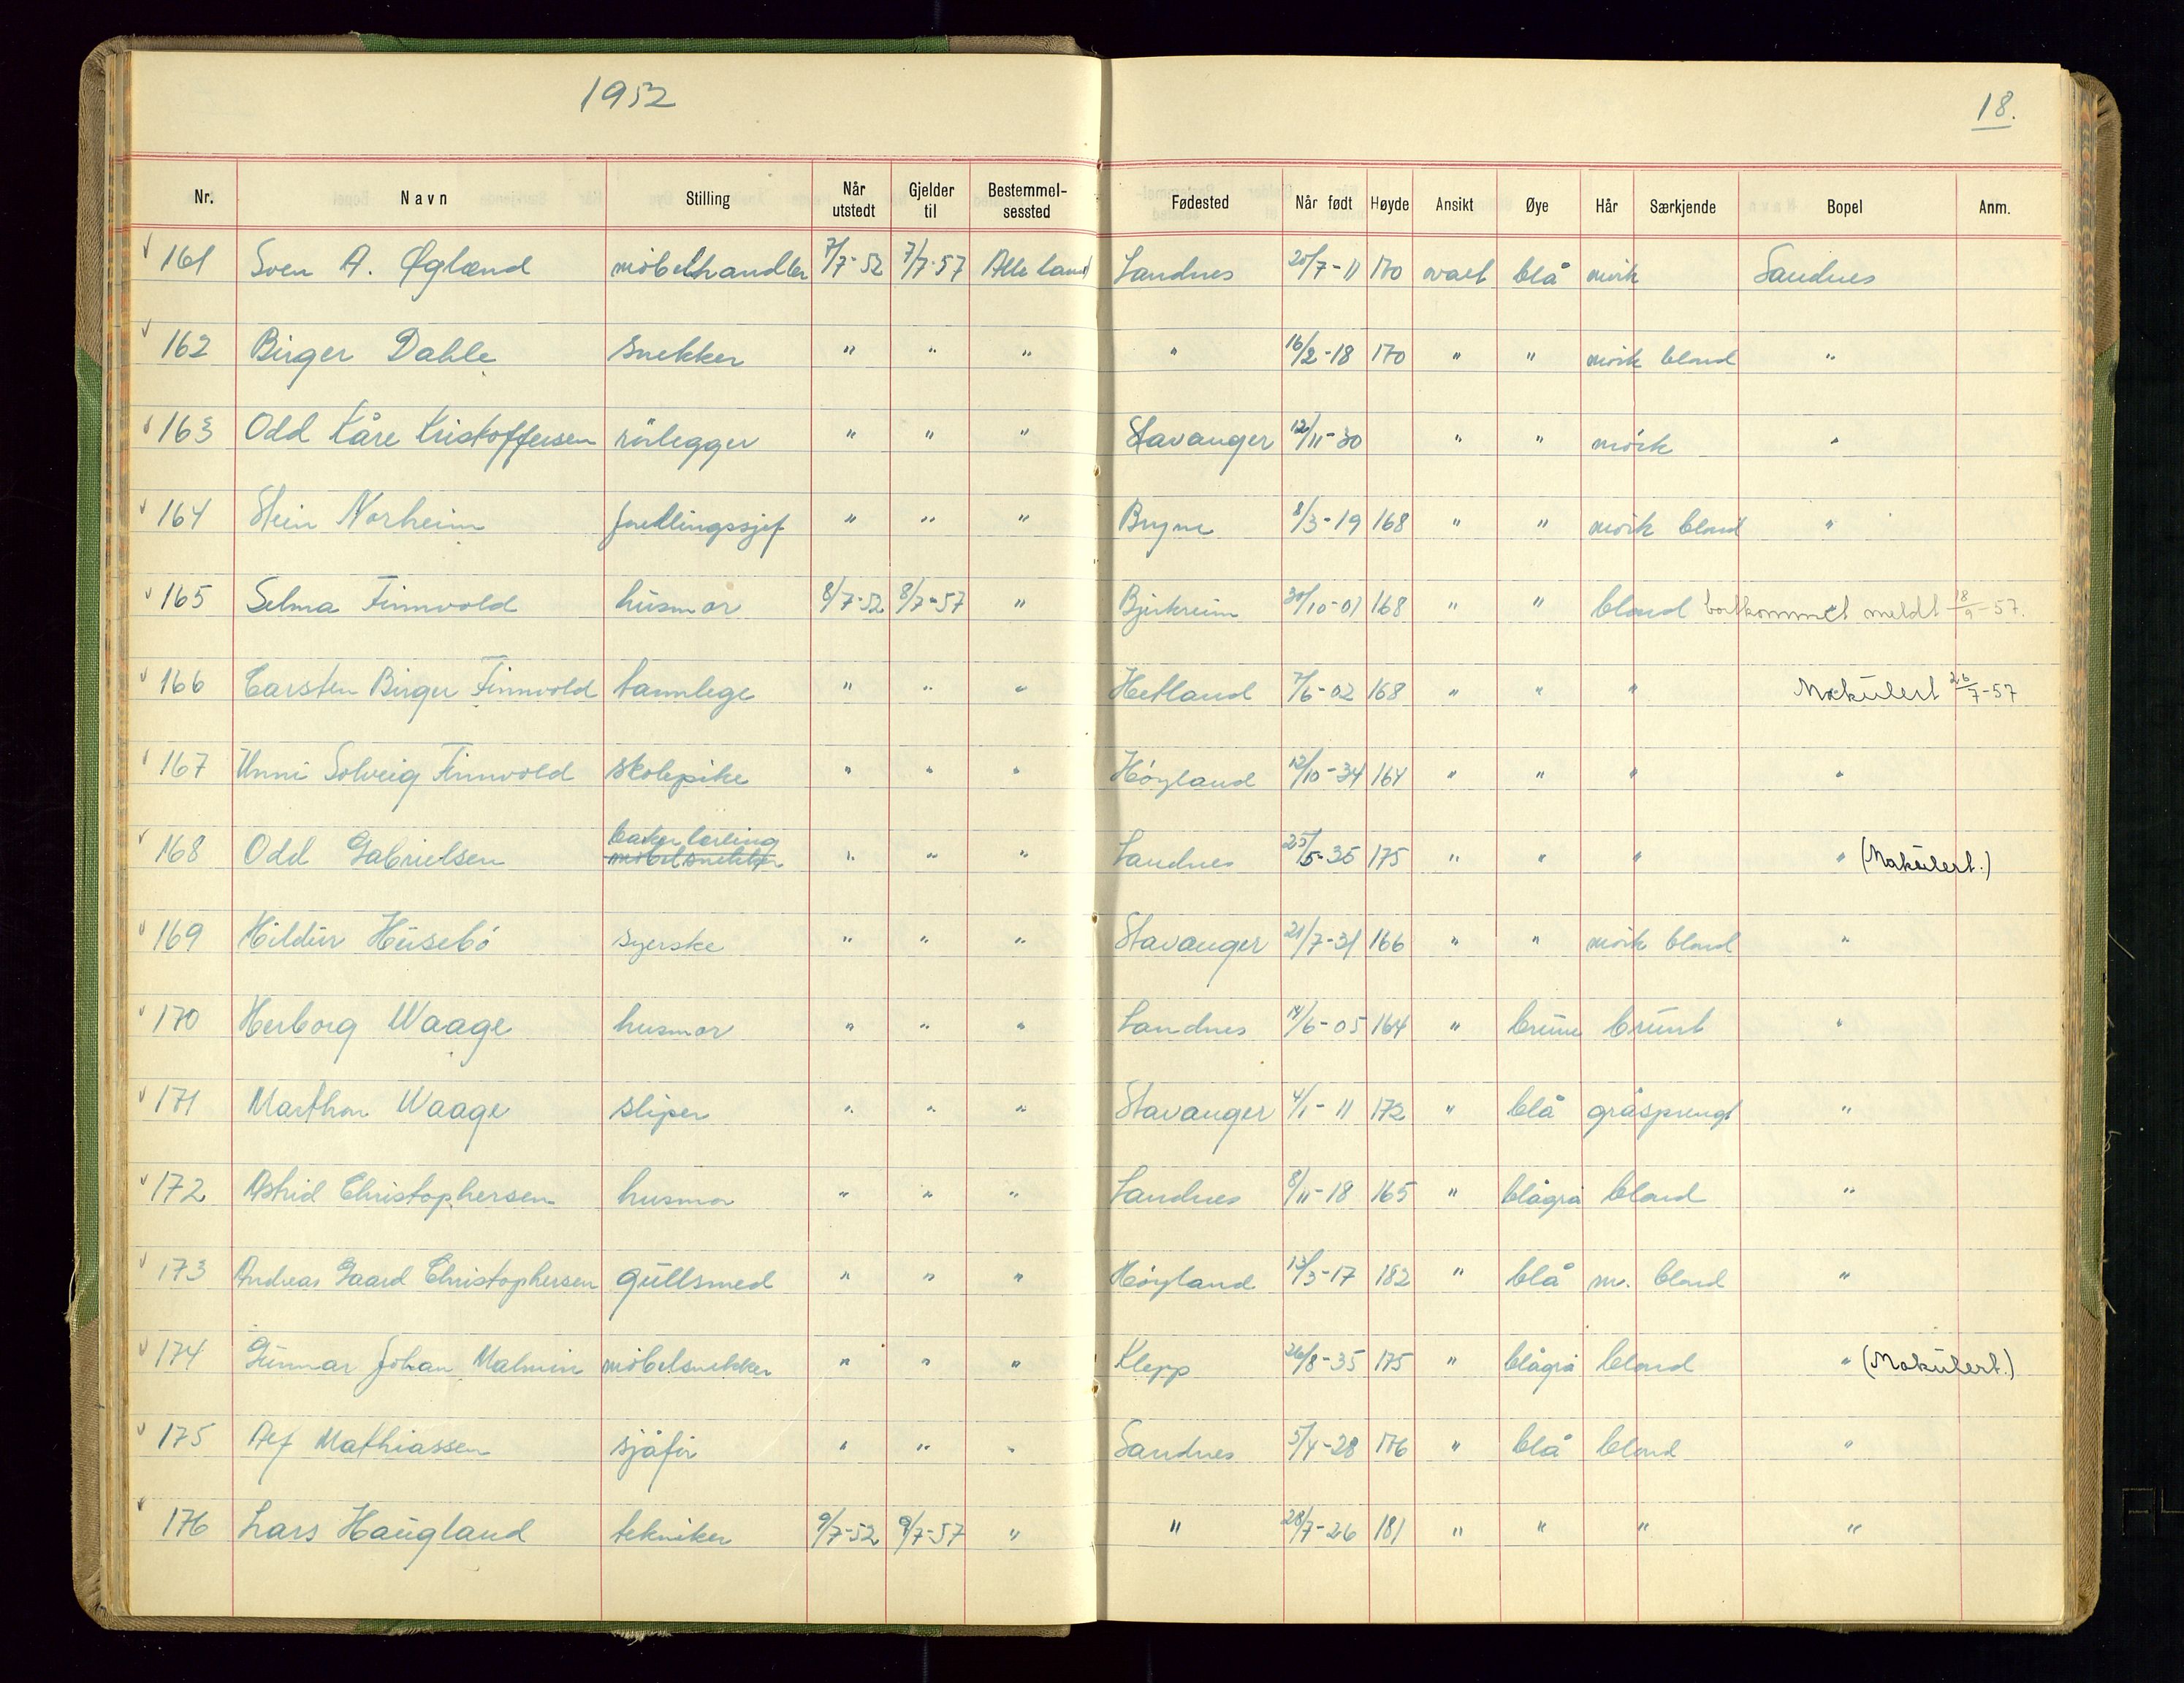 1952
18.
Nr. Navn Stilling Når utstedt Gjelder til Bestemmelsessted Fødested Når født Høyde Ansikt Øye Hår Særkjende Bopel Anm.
161 Sven A. Øglænd møbelhandler 7/7-52 7/7-57 Alle land Sandnes 20/7-11 170 ovalt blå mörk Sandnes
162 Birger Dahle snekker " " " " 16/2-18 170 " " mörk blond "
163 Odd Kåre Kristoffersen rörlegger " " " Stavanger 12/11-30 " " mörk "
164 Stein Norheim " " " Bryne 8/3-19 168 " " mörk blond "
165 Selma Finnvold husmor 8/7-52 8/7-57 " Bjerkreim 30/10-01 168 " " blond bortkommet meldt 18/9-57.
166 Carsten Birger Finnvold tannlege " " " Hetland 7/6-02 168 " " " Makulert 26/7-57
167 Unni Solveig Finnvold skolepike " " " Höyland 12/10-34 164 " " " "
168 Odd Gabrielsen baker lærling møbelsnekker " " " Sandnes 25/5-35 175 " " " " (Makulert.)
169 Hildur Husebö syerske " " " Stavanger 21/7-31 166 " " mörk blond "
170 Herborg Waage husmor " " " Sandnes 14/6-05 164 " brune brunt "
171 Marthon Waage sliper " " " Stavanger 4/1-11 172 " blå gråsprengt "
172 Astrid Christophersen husmor " " " Sandnes 8/11-18 165 " blågrå blond "
173 Andreas Gaard Christophersen gullsmed " " " Höyland 13/3-17 182 " blå m. blond "
174 Gunnar Johan Malmin möbelsnekker " " " Klepp 26/8-35 175 " blågrå blond " (Makulert.)
175 Alf Mathiassen sjåför " " " Sandnes 5/4-28 176 " blå blond "
176 Lars Haugland tekniker 9/7-52 9/7-57 " " 28/7-26 181 " " " "